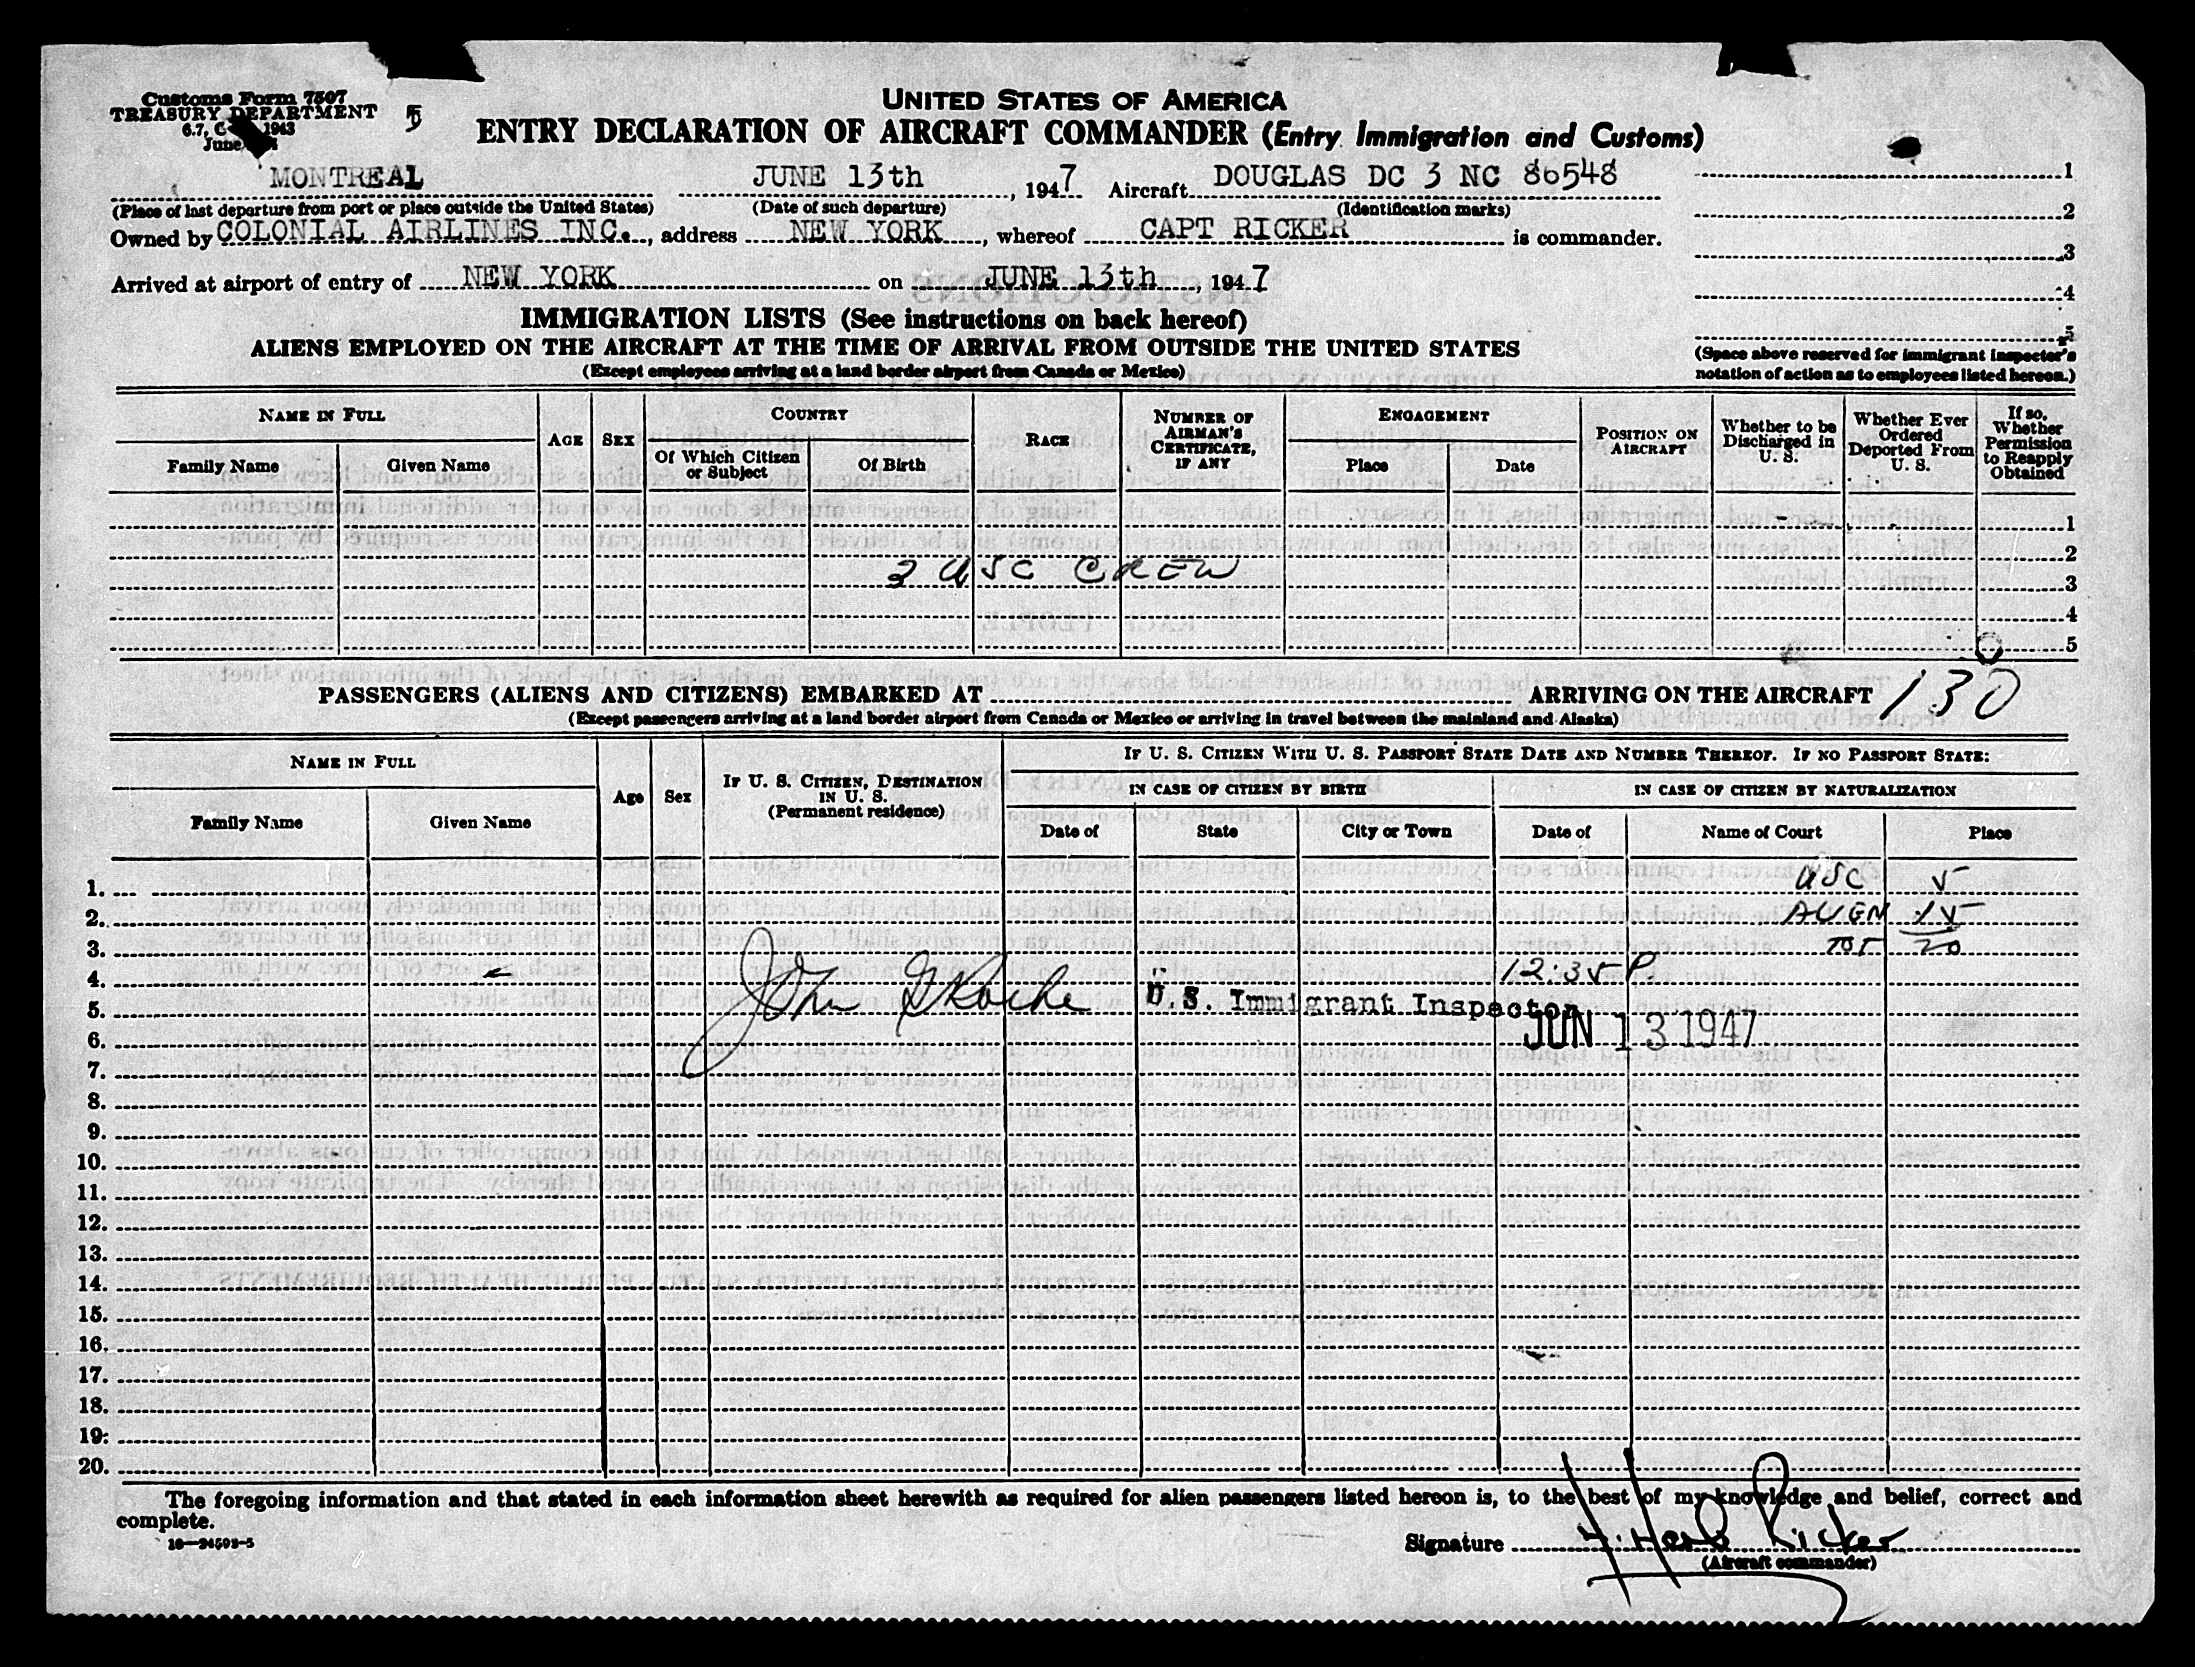 Customs Form 7507
TREASURY DEPARTMENT
6.7, C 1943
June
5
UNITED STATES OF AMERICA
ENTRY DECLARATION OF AIRCRAFT COMMANDER (Entry Immigration and Customs)
MONTREAL JUNE 13th, 1947 Aircraft DOUGLAS DC 3 NC 86548
(Place of last departure from port or place outside the United States) (Date of such departure) (Identification marks)
Owned by COLONIAL AIRLINES INC., address NEW YORK, whereof CAPT RICKER is commander.
Arrived at airport of entry of NEW YORK on JUNE 13th, 1947
1
2
3
4
5
(Space above reserved for immigrant inspector's
notation of action as to employees listed hereon.)
IMMIGRATION LISTS (See instructions on back hereof)
ALIENS EMPLOYED ON THE AIRCRAFT AT THE TIME OF ARRIVAL FROM OUTSIDE THE UNITED STATES
(Except employees arriving at a land border airport from Canada or Mexico)
NAME IN FULL
Family Name Given Name
AGE SEX
COUNTRY
Of Which Citizen or Subject Of Birth
RACE
NUMBER OF AIRMAN'S CERTIFICATE, IF ANY
ENGAGEMENT
Place Date
POSITION ON AIRCRAFT
Whether to be Discharged in U. S.
Whether Ever Ordered Deported From U. S.
If so, Whether Permission to Reapply Obtained
1
2
3 USC CREW
3
4
5
PASSENGERS (ALIENS AND CITIZENS) EMBARKED AT ARRIVING ON THE AIRCRAFT 130
(Except passengers arriving at a land border airport from Canada or Mexico or arriving in travel between the mainland and Alaska)
NAME IN FULL
Family Name Given Name
Age Sex
IF U. S. CITIZEN, DESTINATION IN U. S.
(Permanent residence)
IF U. S. CITIZEN WITH U. S. PASSPORT STATE DATE AND NUMBER THEREOF. IF NO PASSPORT STATE:
IN CASE OF CITIZEN BY BIRTH IN CASE OF CITIZEN BY NATURALIZATION
Date of State City or Town Date of Name of Court Place
1. USC 5
2. ALIEN 15
3. TOT 20
4. 12:35 P.
John Roche U.S. Immigrant Inspector
5.
JUN 13 1947
6.
7.
8.
9.
10.
11.
12.
13.
14.
15.
16.
17.
18.
19.
20.
The foregoing information and that stated in each information sheet herewith as required for alien passengers listed hereon is, to the best of my knowledge and belief, correct and
complete.
16—24503-5
Signature H. Herb Ricker
(Aircraft commander)